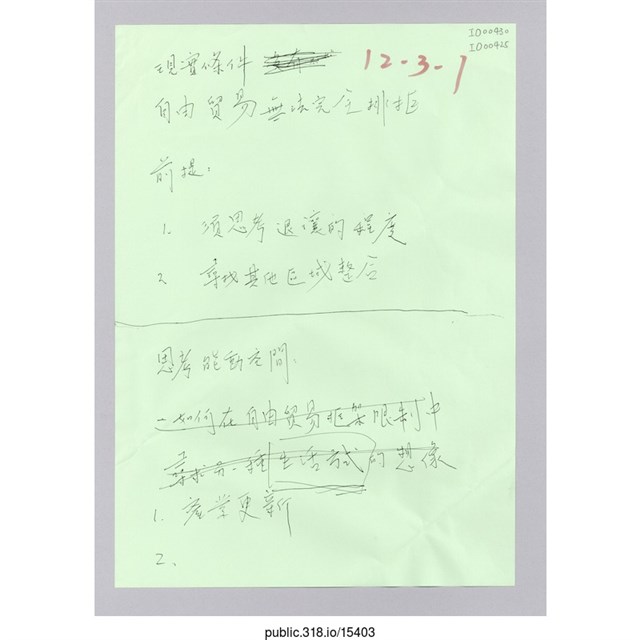 IO00430
IO00425
現實條件 12-3-1
自由貿易無法完全排拒
前提：
1. 須思考退讓的程度
2 尋找其他区域整合
思考能動空間：
-如何在自由貿易框架限制中
尋求另一種生活方式的想像
1. 產業更新
2、
public.318.io/15403